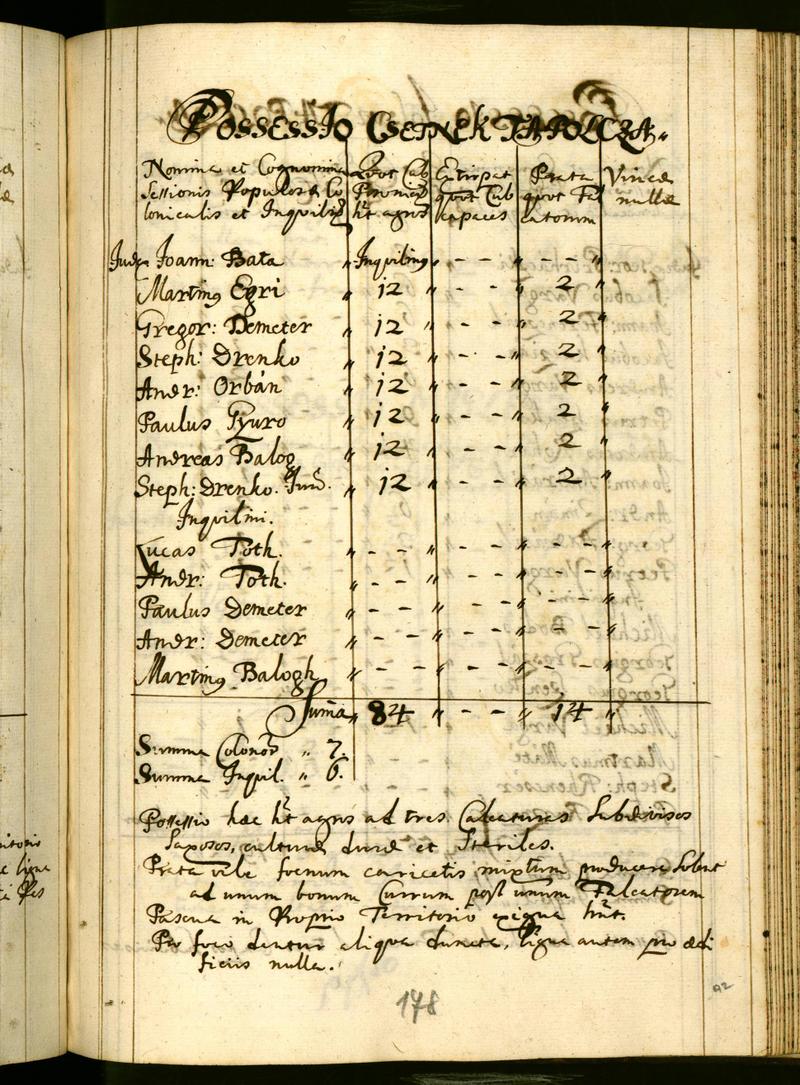 Possessio Csetnek Tapolcza
Nomina et Cognomina Quot Cub Extirpat Prata Vineæ
Sessionis Populosæ Co quot Cub quot Fal nullæ
lonicalis et Inquilin hnt agros capaces catorum
Judex Joann: Bata " Inquilinus " - - " - - "
Martinus Egri " 12 " - - " 2 "
Gregor: Demeter " 12 " - - " 2 "
Steph: Drenko " 12 " - - " 2 "
Andr: Orbán " 12 " - - " 2 "
Paulus Gyuro " 12 " - - " 2 "
Andreas Balog " 12 " - - " 2 "
Steph: Drenko. Jun. " 12 " - - " 2 "
Inquilini.
Lucas Toth. " - - " - - " - - "
Andr: Toth. " - - " - - " - - "
Paulus Demeter " - - " - - " - - "
Andr: Demeter " - - " - - " - - "
Martinus Balogh " - - " - - " - - "
Suma " 84 " - - " 14 "
Summa Colonor " 7.
Summa Inquil. " 6.
Possessio hæc ht agros ad tres Calcaturas Subdivisos
Saxosos, culturæ duræ et Steriles.
Prata vile foenum caricetis mixtum producere Solent
ad unum bonum Currum post unum Falcatorem
Pascua in Proprio Territorio exigua hnt.
Pro foco dentur aliqua dumeta, ligna autem pro ædi
ficiis nulla.
178
92